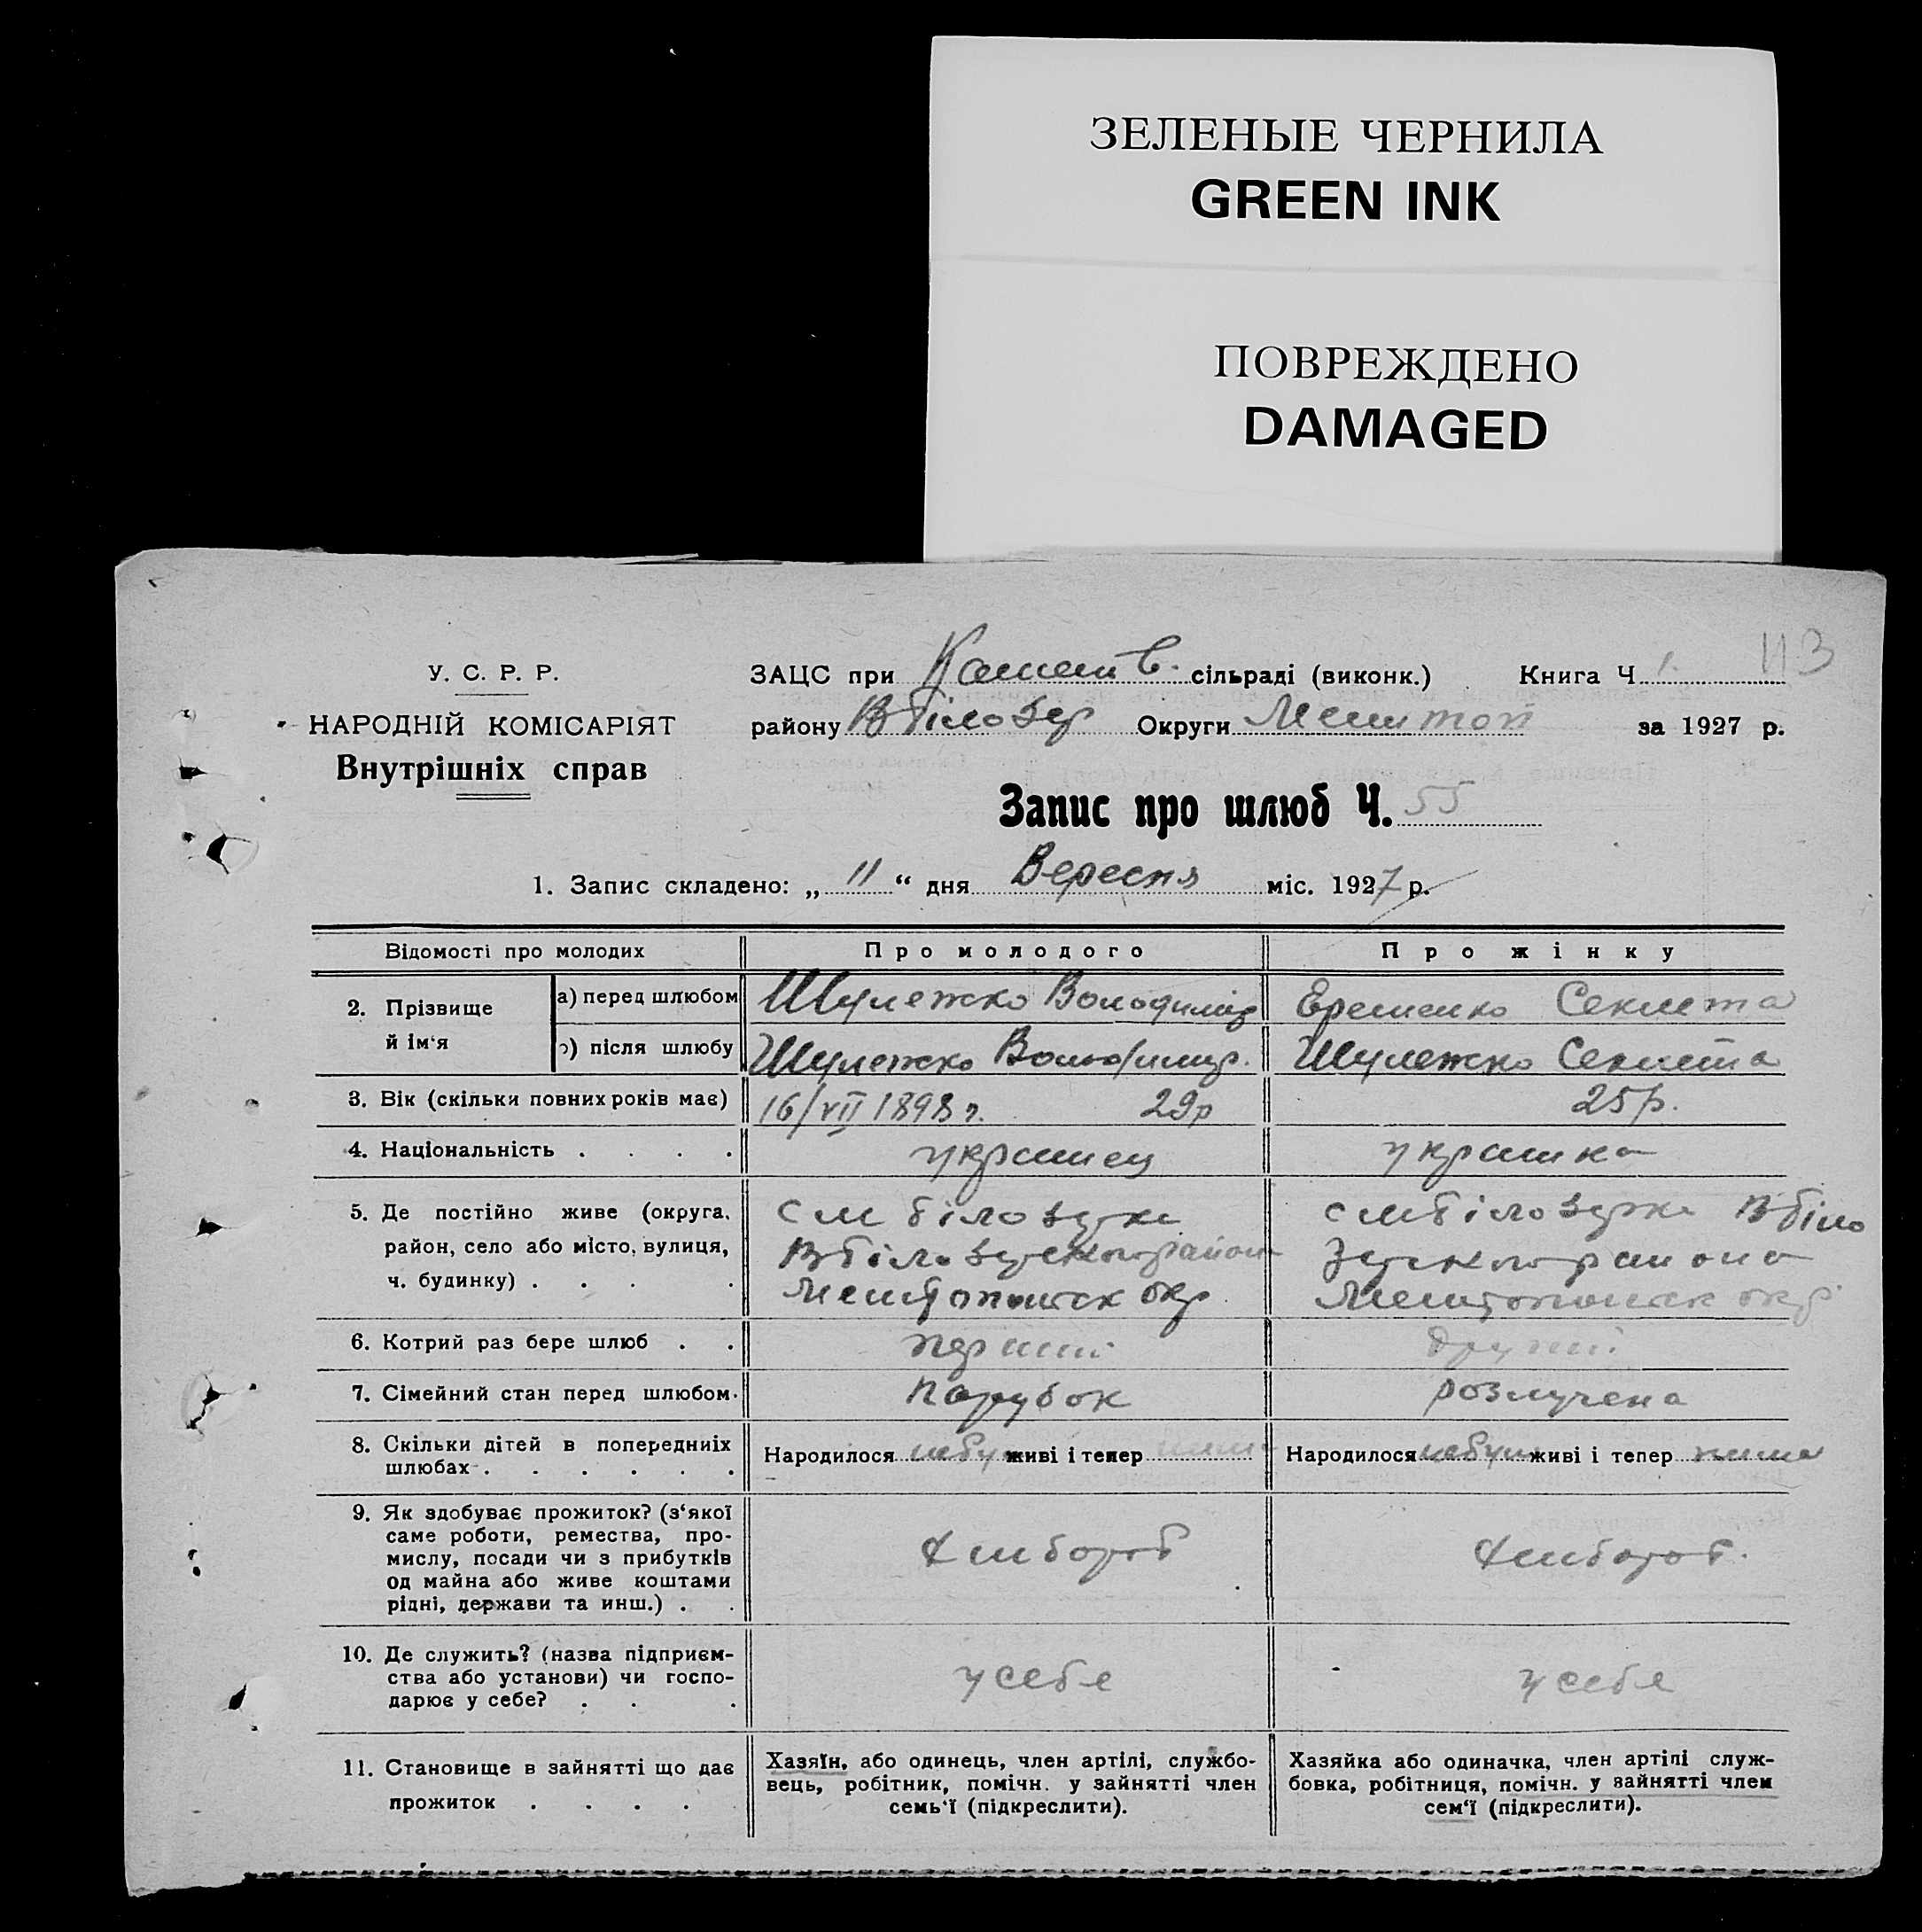 ЗЕЛЕНЫЕ ЧЕРНИЛА
GREEN INK
ПОВРЕЖДЕНО
DAMAGED
113
У. С. Р. Р.
НАРОДНІЙ КОМІСАРІЯТ
Внутрішніх справ
ЗАЦС при сільраді (виконк.) Книга Ч 1.
району В Білозер Округи Мелитоп за 1927 р.
Запис про шлюб Ч. 55
1. Запис складено: „ 11 “ дня Вересня міс. 1927 р.
Відомості про молодих Про молодого Про жінку
2. Прізвище й ім‘я а) перед шлюбом Шулежко Володимір Еременко Секлета
б) після шлюбу Шулежко Володимир. Шулежко Секлета
3. Вік (скільки повних років має) 16/VII 1898 р. 29р 25р.
4. Національність . . . . украинец украинка
5. Де постійно живе (округа, район, село або місто, вулиця, ч. будинку) . . . .
См Білозерка
В Білозерского район
Мелитопольск окр.
См Білозерка В Біло
зерского района
Мелитопольск окр.
6. Котрий раз бере шлюб . . перший другий
7. Сімейний стан перед шлюбом. парубок розлучена
8. Скільки дітей в попередниіх шлюбах . . . . . . Народилося небу живі і тепер нима Народилося небули живі і тепер нима
9. Як здобуває прожиток? (з‘якої
саме роботи, ремества, про-
мислу, посади чи з прибутків
од майна або живе коштами
рідні, держави та инш.) . .
Хлибороб Хлибороб.
10. Де служить? (назва підприєм-
ства або установи) чи госпо-
дарює у себе? . . .
у себе у себе
11. Становище в зайнятті що дає
прожиток . . . .
Хазяїн, або одинець, член артілі, службо-
вець, робітник, помічн. у зайнятті член
семь‘ї (підкреслити).
Хазяйка або одиначка, член артілі служ-
бовка, робітниця, помічн. у зайнятті член
сем‘ї (підкреслити).